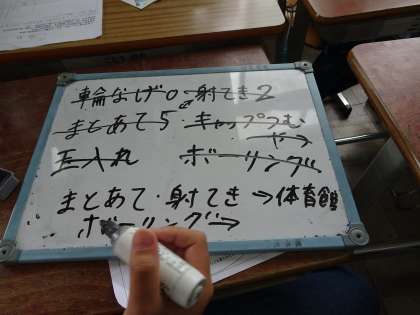 輪なげ0 射てき2
まとあて5 キャップつむ
やつ
玉入れ ボーリング
まとあて・射てき→体育館
ボーリング→